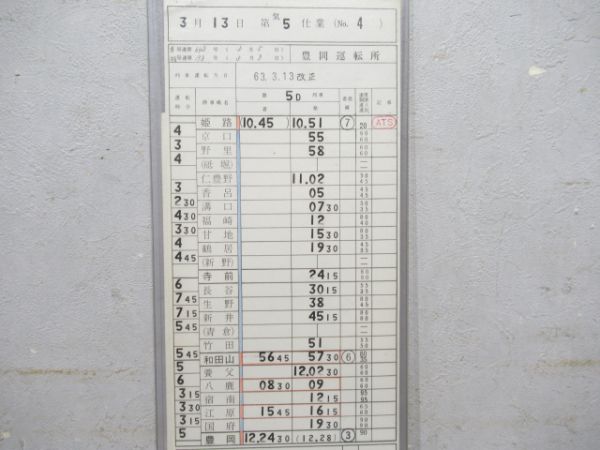 3月13日 第気5仕業 (No. 4)
豊岡運転所
63.3.13改正
運転時分 停車場名 第5D列車 着発 着発線 記事
姫路 (10.45) 10.51 ⑦ 20 ATS
4 京口 55
3 野里 58
4 (砥堀)
仁豊野 11.02
3 香呂 05
2 30 溝口 07 30
4 30 福崎 12
3 30 甘地 15 30
4 鶴居 19 30
4 45 (新野)
寺前 24 15
6 長谷 30 15
7 45 生野 38
7 15 新井 45 15
5 45 (青倉)
竹田 51
5 45 和田山 56 45 57 30 ⑥
5 養父 12.02 30
6 八鹿 08 30 09
3 15 宿南 12 15
3 30 江原 15 45 16 15
3 15 国府 19 30
5 豊岡 12.24 30 (12.28) ③ 90